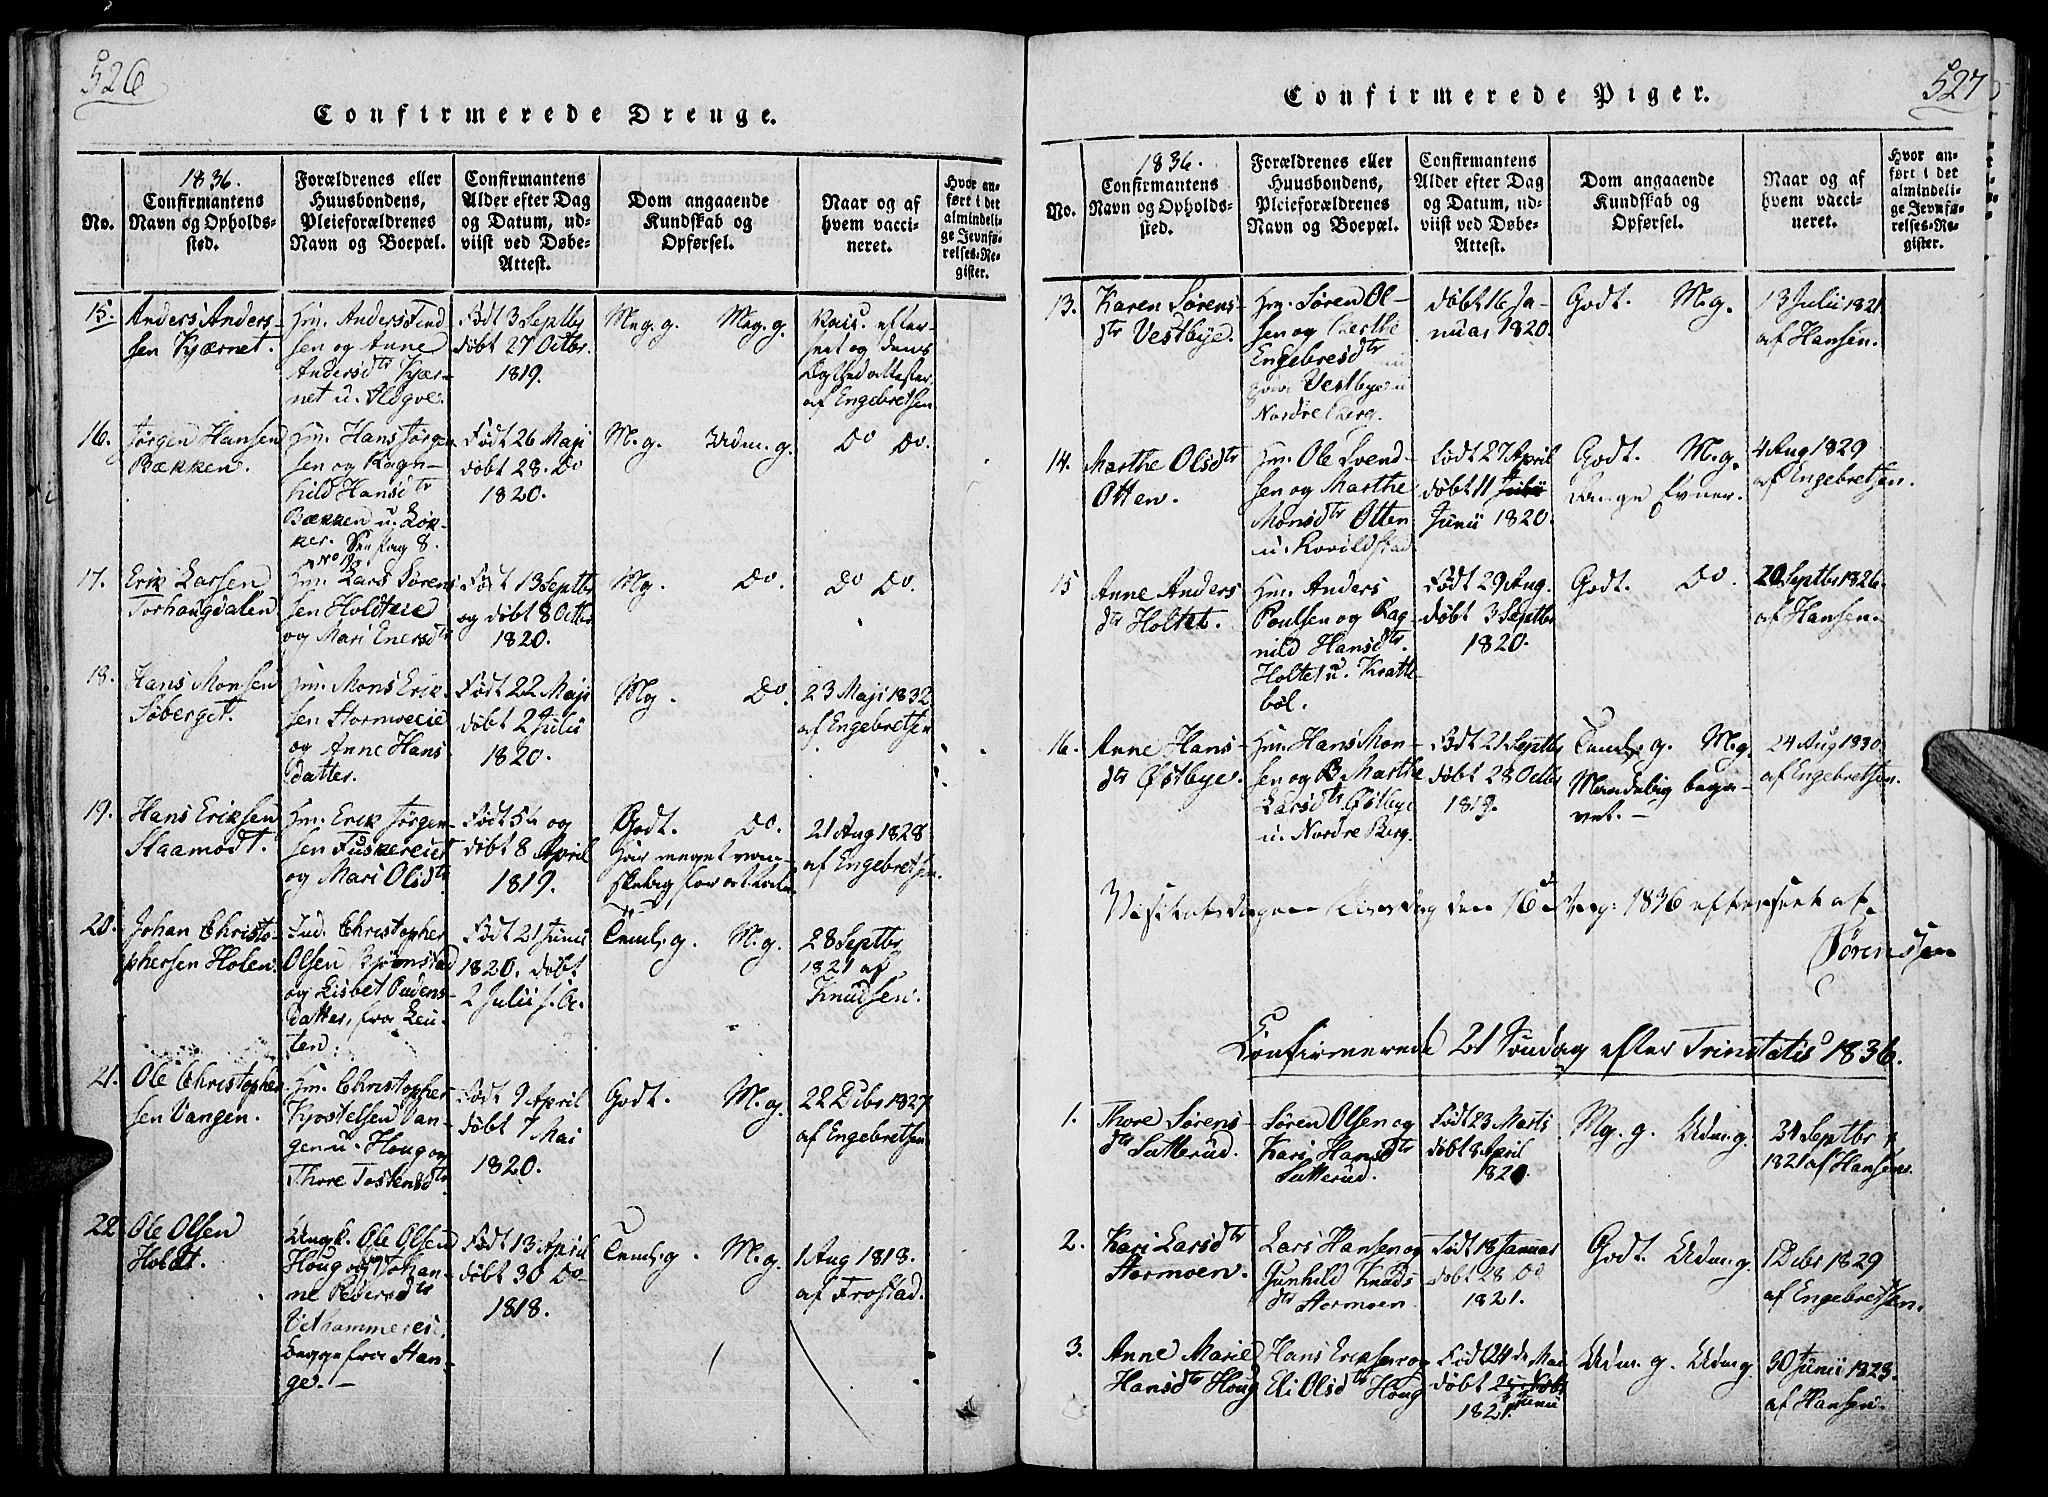 526
Confirmerede Drenge.
No.
1836.
Confirmantens
Navn og Opholds-
sted.
Forældrenes eller
Huusbondens,
Pleieforældrenes
Navn og Boepæl.
Confirmantens
Alder efter Dag
og Datum, ud-
viist ved Døbe-
Attest.
Dom angaaende
Kundskab og
Opførsel.
Naar og af
hvem vacci-
neret.
Hvor an-
ført i det
almindeli-
ge Jevnfø-
relses-Re-
gister.
15.
Anders Anders-
sen Kjærnet.
Hm. Anders Find
sen og Anne
Andersdtr Kjær-
net u. Høgve.
Født 3 Septbr
døbt 27 Octbr.
1819.
Meg. g. Meg. g.
efter-
seet og dens
af Engebretsen
16.
Jørgen Hansen
Bækken.
Hm. Hans Jørgen-
sen og Ragn-
hild Hansdtr
Bækken u. Løk-
ker.
Født 26 Maji
døbt 28. Do
1820.
M. g. Udm. g.
Do Do.
17.
Erik Larsen
Torhaugdalen
Hm. Lars Søren-
sen Holdteie
og Mari Enersdtr
Født 13 Septbr
og døbt 8 Octbr
1820.
Mg. Do.
Do Do.
18.
Hans Monsen
Søberget.
Hm. Mons Erik-
sen Stormoeeie
og Anne Hans
datter.
Født 22 Maji
døbt 2 Julii
1820.
Mg. Do.
23 Maji 1832
af Engebretsen
19.
Hans Eriksen
Staamodt.
Hm. Erik Jørgen-
sen Fuskereiet
og Mari Olsdtr
Født 5te og
døbt 8 April
1819.
Godt. Do.
har meget van-
skelig for at tale
21 Aug 1828
af Engebretsen.
20.
Johan Christo-
phersen Holen.
Ind. Christopher
Olsen Bjørnstad
og Lisbet Pedens-
datter, fra Leu-
ten.
Født 21 Junii
1820. døbt
2 Julii s. A.
Teml. g. M. g.
28 Septbr
1821 af
Knudsen.
21.
Ole Christopher
sen Vangen.
Hm. Christopher
Kjostelsen Van-
gen u. Houg og
Thore Tostensdtr
Født 9 April
døbt 7 Mai
1820.
Godt. M. g.
22 Debr 1827
af Engebretsen
22
Ole Olsen
Holdt.
Ungk. Ole Olsen
Houg og Johan-
ne Pedersdtr
Vethammereie,
begge fra Stan-
ge. –
Født 13 April
døbt 30 Do
1818.
Teml. g. M. g.
1 Aug 1818.
af Frostad.
527
Confirmerede Piger.
No.
1836.
Confirmantens
Navn og Opholds-
sted.
Forældrenes eller
Huusbondens,
Pleieforældrenes
Navn og Boepæl.
Confirmantens
Alder efter Dag
og Datum, ud-
viist ved Døbe-
Attest.
Dom angaaende
Kundskab og
Opførsel.
Naar og af
hvem vacci-
neret.
Hvor an-
ført i det
almindeli-
ge Jevnfø-
relses-Re-
gister.
13.
Karen Sørens-
dtr Vestbye.
Hm. Søren Ol-
sen og Berthe
Engebresdtr
Vestbye u
Nordre Berg.
døbt 16 Ja-
nuar 1820.
Godt. M. g.
13 Julii 1821
af Hansen.
14.
Marthe Olsdtr
Otten.
Hm. Ole Svend-
sen og Marthe
Monsdtr Otten
u. Rovildstad
Født 27 April
døbt 11 Julii
Junii 1820.
Godt. M. g.
Svage Evner.
4 Aug 1829
af Engebretsen.
15
Anne Anders
dtr Holtet.
Hm. Anders
Poulsen og Rag-
nild Hansdtr.
Holtet u. Kratte-
bøl.
Født 29 Aug.
døbt 3 Septbr
1820.
Godt. Do.
20 Septbr 1826.
af Hansen.
16.
Anne Hans-
dtr Østbye.
Hm. Hans Mon-
sen og B Marthe
Larsdtr Østbye
u. Nordre Berg.
Født 21 Septbr
døbt 28 Octbr
1819.
Teml. g. M. g.
Maadelig bega-
vet. –
24 Aug 1830.
af Engebretsen.
Visitatsdagen den 16d Aug: 1836 efterseet af
Sørenssen
Confirmerede 21 Søndag efter Trinitatis 1836.
1.
Thore Sørens-
dtr Satterud.
Søren Olsen og
Kari Hansdtr
Satterud.
Født 23 Marts
døbt 8 April
1820.
Mg. g. Udm. g.
31 Septbr
1821 af Hansen.
2.
Kari Larsdtr
Stormoen.
Lars Hansen og
Gunhild Knuds
dtr Stormoen
Født 18 Januar
døbt 28 Do
1821.
Godt. Udm. g.
1 Debr 1829
af Engebretsen.
3.
Anne Marie
Hansdtr Houg
Hans Eriksen og
Eli Olsdtr Houg
Født 24de Mai
døbt
Junii
1821.
Udm. g. Udm. g
30 Junii 1823.
af Hansen.